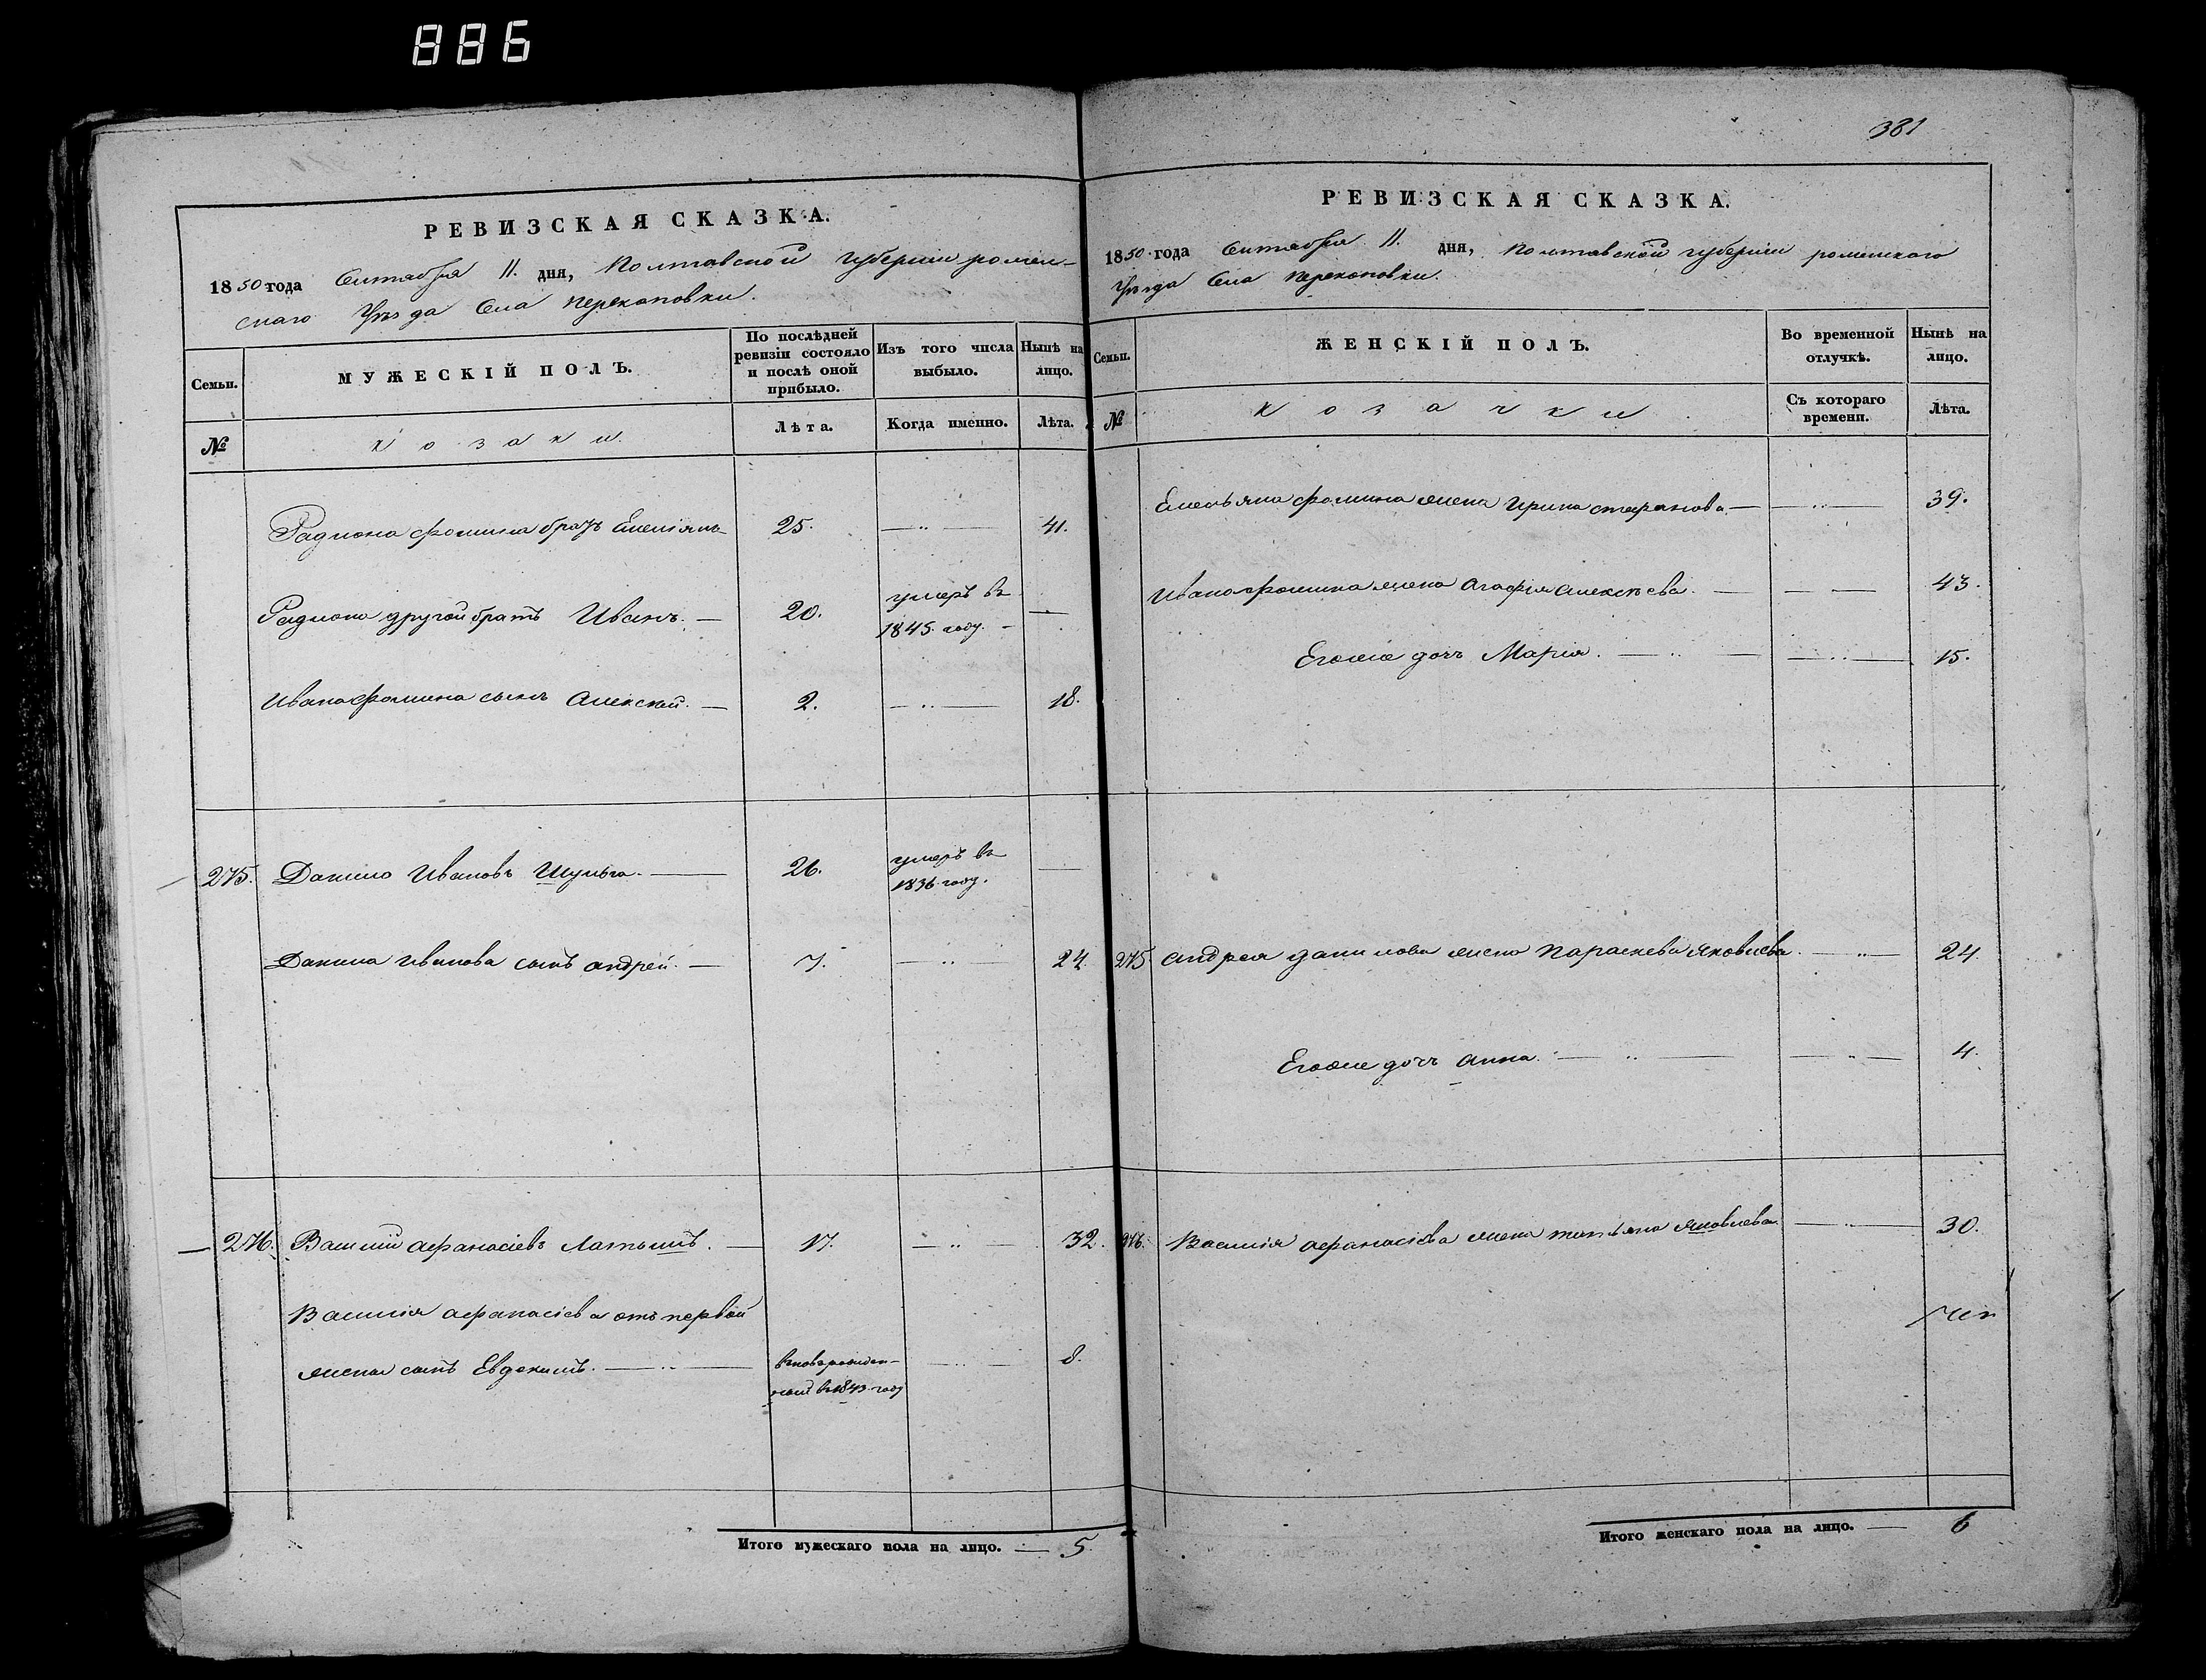 886
РЕВИЗСКАЯ СКАЗКА.
1850 года Сентября 11. дня, Полтавской губерніи ромен-
скаго Уѣзда Села Перекоповки.
Семьи.
МУЖЕСКІЙ ПОЛЪ.
По послѣдней ревизіи состояло и послѣ оной прибыло.
Изъ того числа выбыло.
Нынѣ на лицо.
№
козаки.
Лѣта.
Когда именно.
Лѣта.
Радиона Фомина братъ Емеліянъ 25. 41.
Радиона другой братъ Иванъ. 20. умеръ въ 1845. году.
Ивана Фомина сынъ Алексѣй. 2. 18.
275. Данило Ивановъ Шульга. 26. умеръ въ 1836 году.
Данила Иванова сынъ андрей. 7. 24
276. Василій афанасіевъ Латышъ. 17. 32.
Василія афанасіева отъ первой
жены сынъ Евдокимъ. 8.
въ 1843 году
Итого мужескаго пола на лицо. 5.
381
РЕВИЗСКАЯ СКАЗКА.
1850 года Сентября 11. дня, Полтавской губерніи роменскаго
Уѣзда Села Перекоповки.
Семьи.
ЖЕНСКІЙ ПОЛЪ.
Во временной отлучкѣ.
Нынѣ на лицо.
№
козачки
Съ котораго времени.
Лѣта.
Емельяна Фомина жена Ирина стефанова 39.
Ивана Фомина жена Агафія алексѣева. 43.
Егоже дочь Марія. 15.
275 андрея данилова жена Параскева яковлева. 24.
Егоже дочь анна. 4.
276. Василія афанасіева жена татьяна яковлева 30.
Итого женскаго пола на лицо. 6